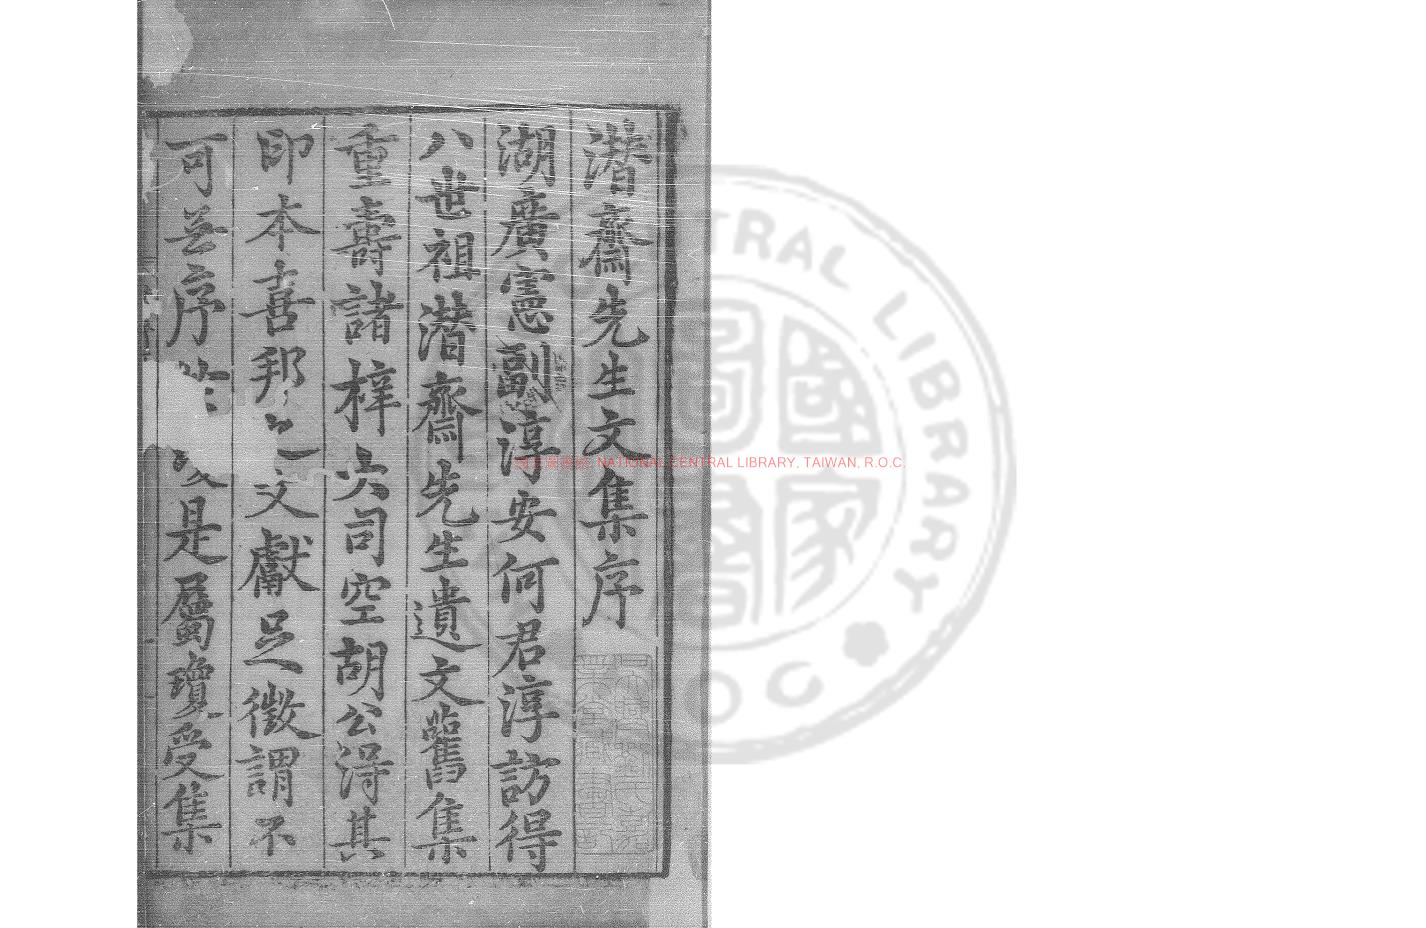 潛齋先生文集序
湖廣憲副淳安何君淳訪得
八世祖潛齋先生遺文舊集
重壽諸梓大司空胡公得其
印本喜邦文獻足徵謂不
可無序是屬瓊受集
國家圖書館, NATIONAL CENTRAL LIBRARY, TAIWAN, R.O.C.
TRAL LIBRARY